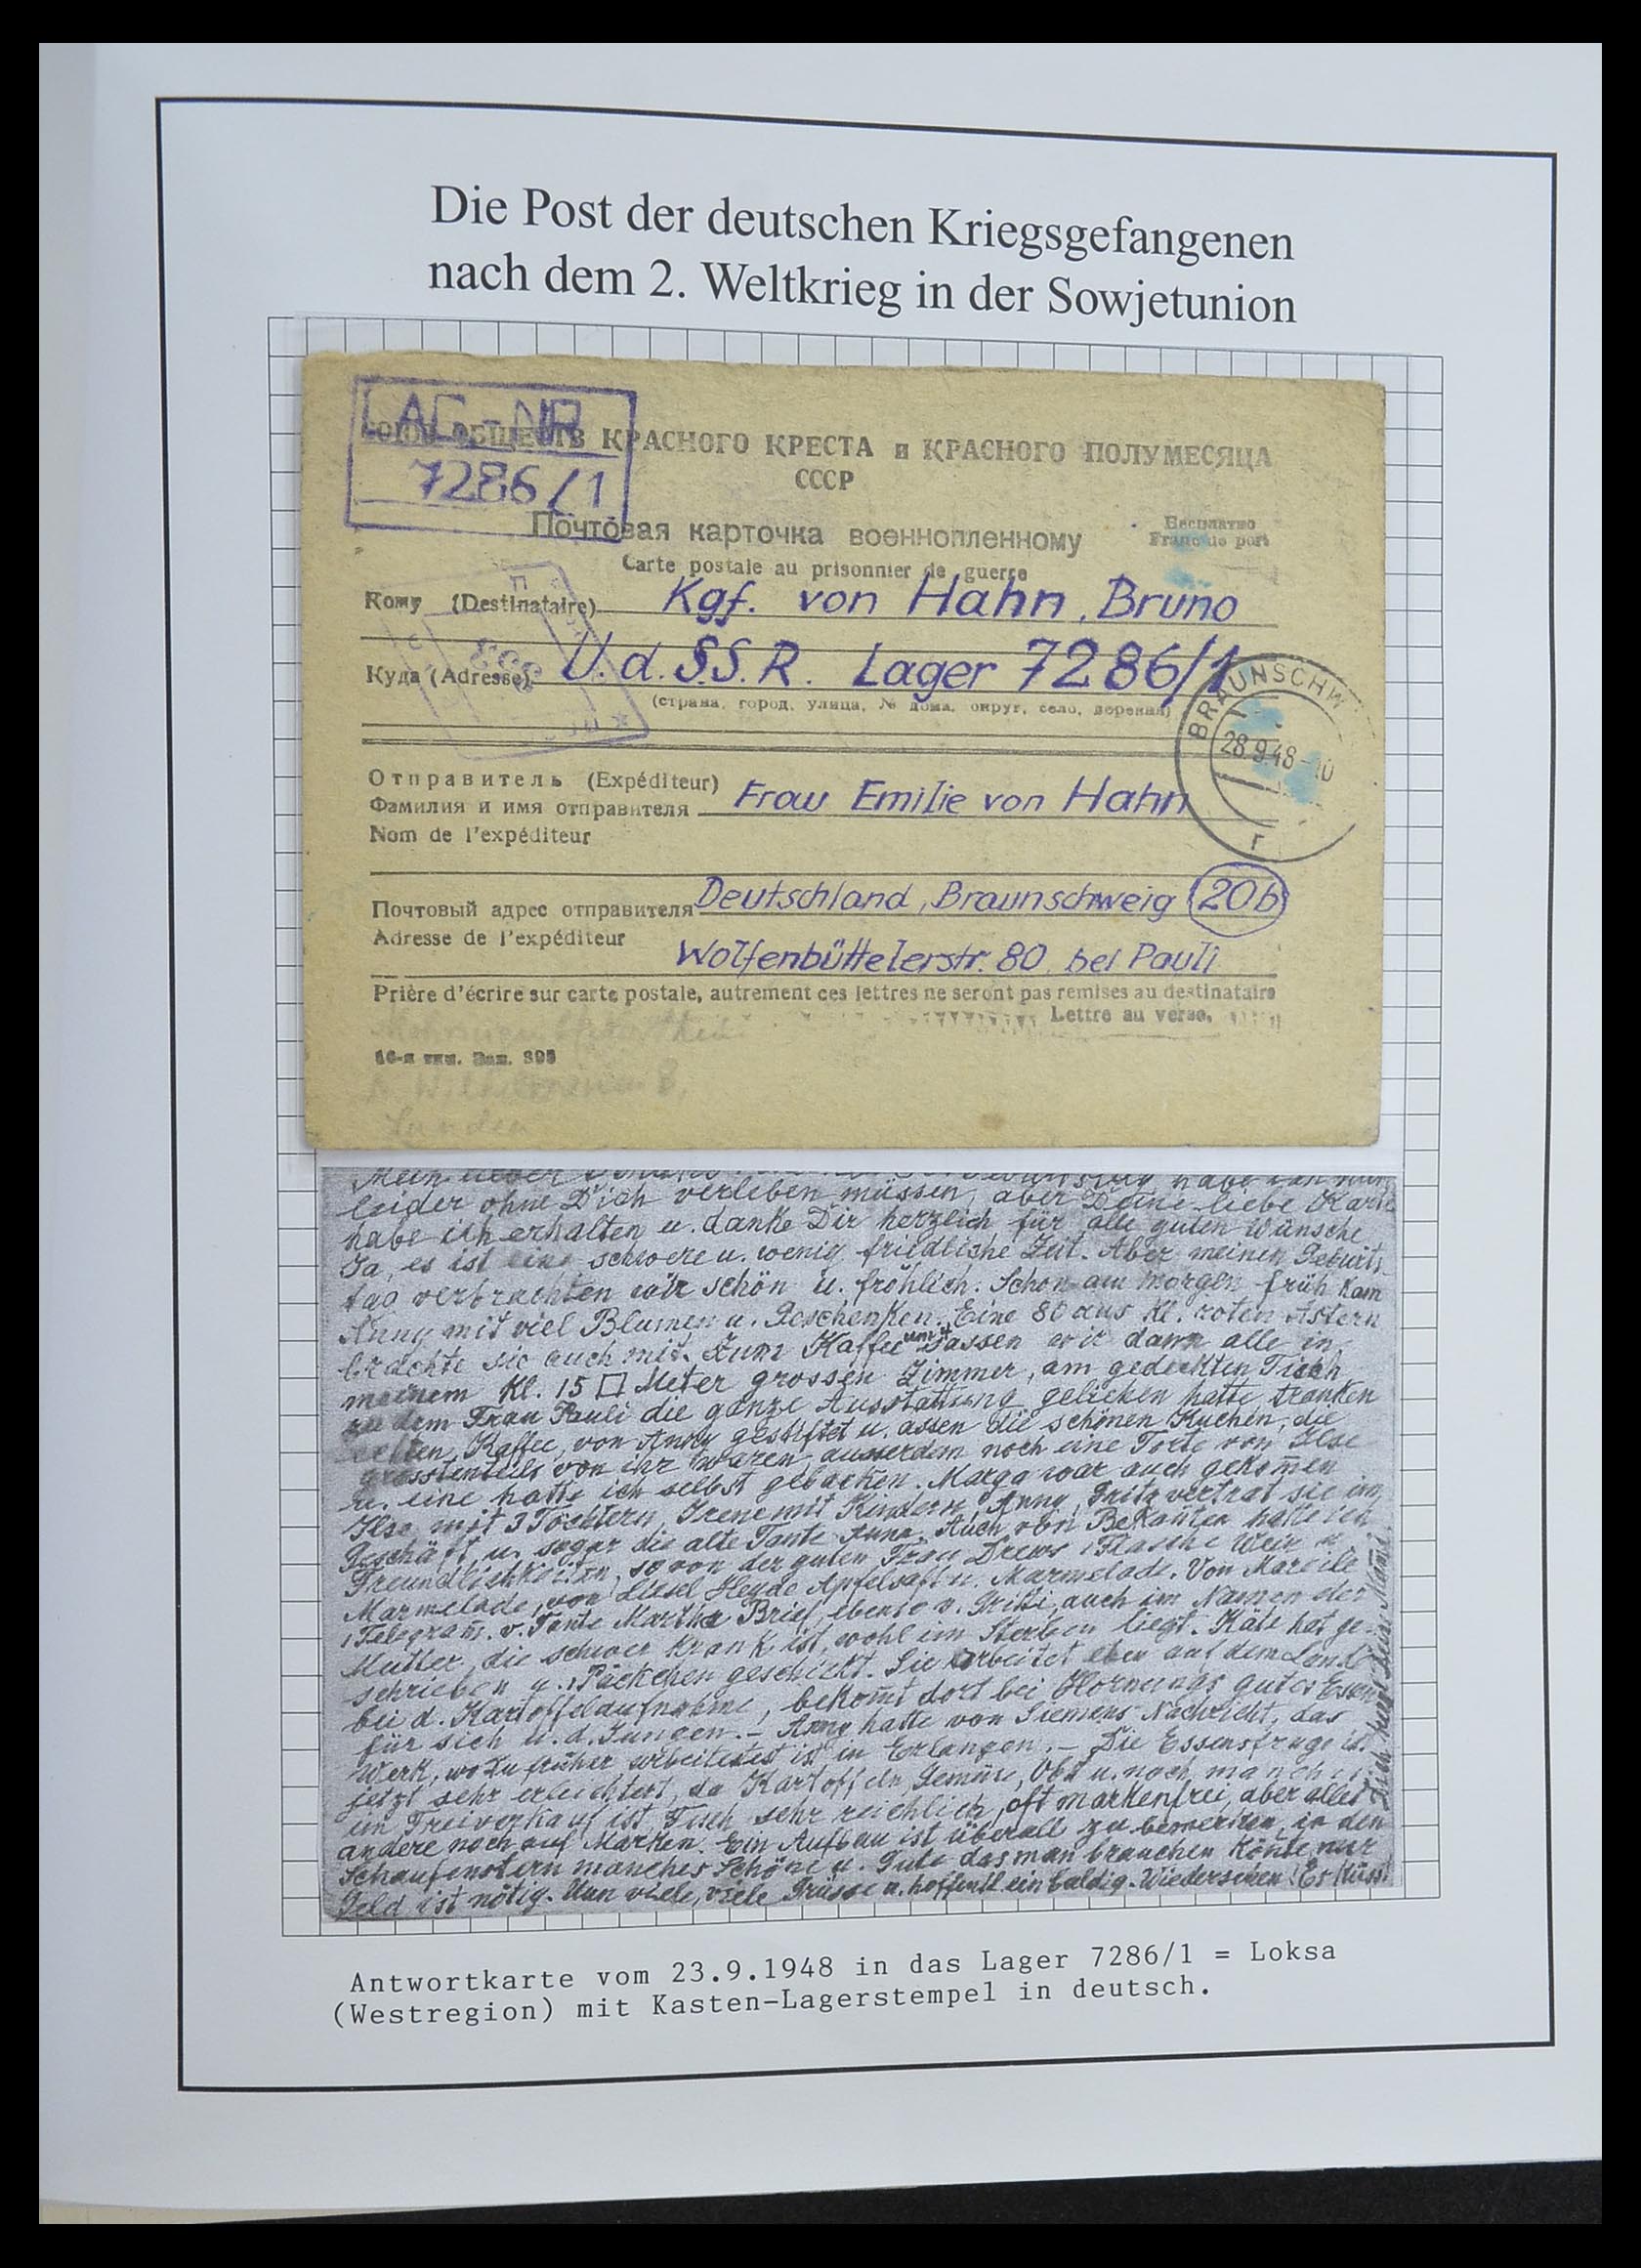 Die Post der deutschen Kriegsgefangenen
nach dem 2. Weltkrieg in der Sowjetunion
LAG-NR
7286/1
ОБЩЕСТВ КРАСНОГО КРЕСТА и КРАСНОГО ПОЛУМЕСЯЦА
СССР
Почтовая карточка военнопленному
Бесплатно
Carte postale au prisonnier de guerre
Franc de port
Кому (Destinataire) Kgf. von Hahn, Bruno
Куда (Adresse) U.d.S.S.R. Lager 7286/1
(страна, город, улица, № дома, округ, село, деревня)
BRAUNSCHW
28.9.48-10
r
Отправитель (Expéditeur)
Фамилия и имя отправителя Frau Emilie von Hahn
Nom de l'expéditeur
Почтовый адрес отправителя Deutschland, Braunschweig 20b
Adresse de l'expéditeur
Wolfenbüttelerstr. 80 bei Pauli
Prière d'écrire sur carte postale, autrement ces lettres ne seront pas remises au destinataire
Lettre au verso.
16-я тип. Зак. 395
Mein lieber habe ich nun
leider ohne Dich verleben müssen, aber Deine liebe Karte
habe ich erhalten u. danke Dir herzlich für alle guten Wünsche
Ja, es ist eine schwere u. wenig friedliche Zeit. Aber meinen Geburts
tag verbrachten wir schön u. fröhlich. Schon am Morgen früh kam
Anny mit viel Blumen u. Geschenken. Eine 80 aus kl. roten Astern
brachte sie auch mit. Zum Kaffee um 4 sassen wir dann alle in
meinem kl. 15 □ Meter grossen Zimmer, am gedeckten Tisch
zu dem Frau Pauli die ganze Ausstattung geliehen hatte tranken
echten Kaffee, von Anny gestiftet u. assen die schönen Kuchen, die
grösstenteils von ihr waren, ausserdem noch eine Torte von Ilse
u. eine hatte ich selbst gebacken. Marga war auch gekommen
Ilse mit 3 Töchtern, Irene mit Kindern, Anny, Fritz vertrat sie im
Geschäft, u. sogar die alte Tante Anna. Auch von Bekannten hatte ich
Freundlichkeiten, so von der guten Frau Drews 1 Flasche Wein u.
Marmelade, von Liesel Heyde Apfelsaft u. Marmelade. Von Mareile
1 Telegram. v. Tante Martha Brief ebenso v. auch im Namen der
Mutter, die schwer krank ist, wohl im Sterben liegt. Käte hat ge-
schrieben u. 1 Päckchen geschickt. Sie arbeitet eben auf dem Land
bei d. Kartoffelaufnahme, bekomt dort bei Hornungs gutes Essen
für sich u. d. Jungen. – Anny hatte von Siemens Nachricht, das
Werk, wo Du früher arbeitetest ist in Erlangen. – Die Essensfrage ist
jetzt sehr erleichtert, da Kartoffeln, Gemüse, Obst u. noch manches
im Freiverkauf ist, Fisch sehr reichlich, oft markenfrei, aber alles
andere noch auf Marken. Ein Aufbau ist überall zu bemerken, in den
Schaufenstern manches Schöne u. Gute das man brauchen könte nur
Geld ist nötig. Nun viele, viele Grüsse u. hoffentl. ein baldig. Wiedersehen! Es küsst
Dich Deine Mami
Antwortkarte vom 23.9.1948 in das Lager 7286/1 = Loksa
(Westregion) mit Kasten-Lagerstempel in deutsch.